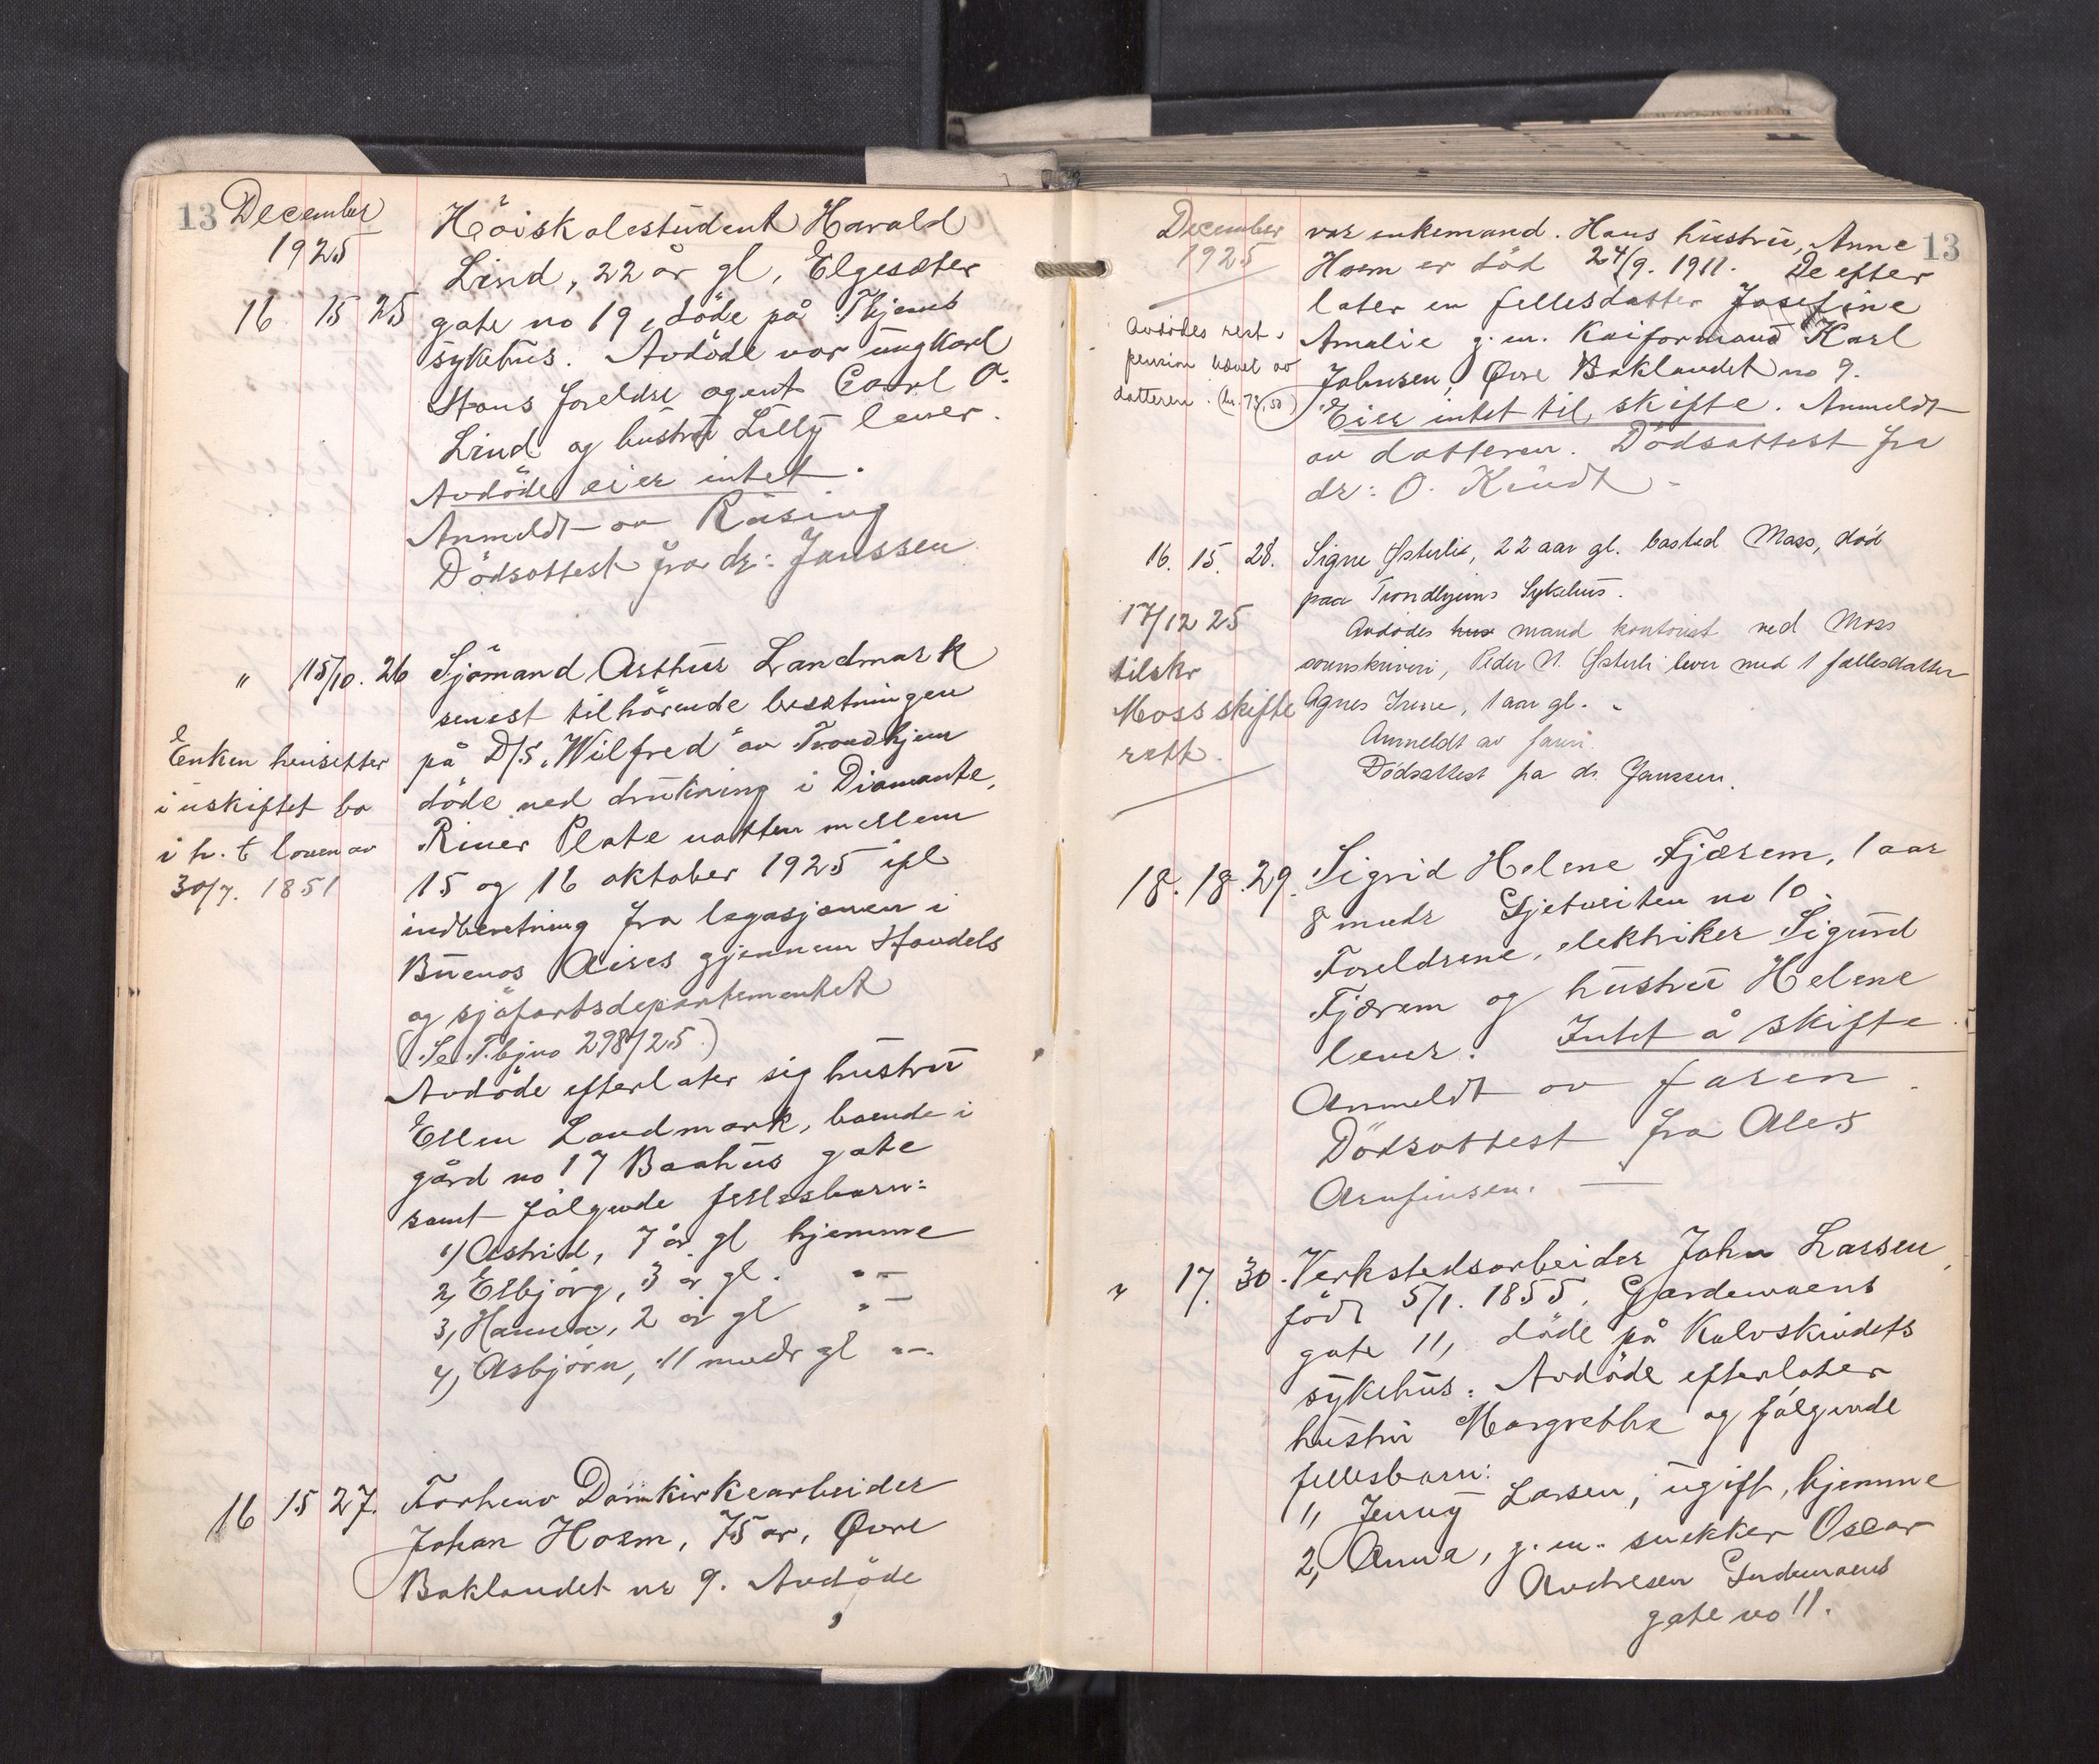 13 December
1925
16 15 25
Höiskolestudent Harald
Lind, 22 år gl, Elgesæter
gate no 19, döde på Thjems
sykehus. Avdöde var ungkarl
Hans foreldre agent Carl O.
Lind og hustru Lilly lever.
Avdöde eier intet.
Anmeldt av Rusing
Dödsattest fra dr: Janssen
" 15/10. 26 Sjömand Arthur Landmark
senest tilhörende besetningen
på D/S. "Wilfred" av Trondhjem
döde ved drukning i Diamante,
River Plate natten mellem
15 og 16 oktober 1925 ifl
indberetning fra legasjonen i
Buenos Aires gjennem Handels
og sjöfartsdepartementet
(Se T.bjno 298/25.)
Avdöde efterlater sig hustru
Ellen Landmark, boende i
gård no 17 Baahus gate
samt fölgende fellesbarn:
1) Astrid, 7 år gl hjemme
2, Elbjörg, 3 år gl. -"-
3, Hanna, 2 år gl -"-
4, Asbjörn, 11 mndr gl -"-
Enken hensitter
i uskiftet bo
i h. t loven av
30/7. 1851
16 15 27. Forhenv Domkirkearbeider
Johan Hoem, 75 år, Øvre
Baklandet nr 9. Avdöde
December
1925
13
var enkemand. Hans hustru, Anne
Hoem er död 24/9. 1911. De efter
later en fellesdatter Josefine
Amalie g. m. Kaiformand Karl
Johnsen, Øvre Baklandet no 9.
Eier intet til skifte. Anmeldt
av datteren. Dödsattest fra
dr: O. Kindt -
Avdødes rest-
pension hævet av
datteren. (kr. 73,50)
16. 15. 28. Signe Østerlie, 22 aar gl. bosted Moss, død
paa Trondhjems Sykehus.
Avdødes hus mand kontorist ved Moss
sorenskriveri, Peder N. Østerli lever med 1 fællesdatter
Agnes Irene, 1 aar gl.
Anmeldt av faren.
Dødsattest fra dr. Janssen.
17/12 25
tilskr
Moss skifte
rett.
18. 18. 29. Sigrid Helene Fjærem, 1 aar
8 mndr Gjetveiten no 10.
Foreldrene, elektriker Sigurd
Fjærem og hustru Helene
lever. Intet å skifte.
Anmeldt av faren.
Dödsattest fra Alex
Arnfinsen.
" 17. 30. Verkstedsarbeider John Larsen,
födt 5/1. 1855, Gardemoens
gate 11, döde på Kalvskindets
sykehus. Avdöde efterlater
hustru Margrethe og fölgende
fellesbarn:
1, Jenny Larsen, ugift, hjemme
2, Anna, g. m. snekker Oscar
Andresen Gardemoens
gate no 11.